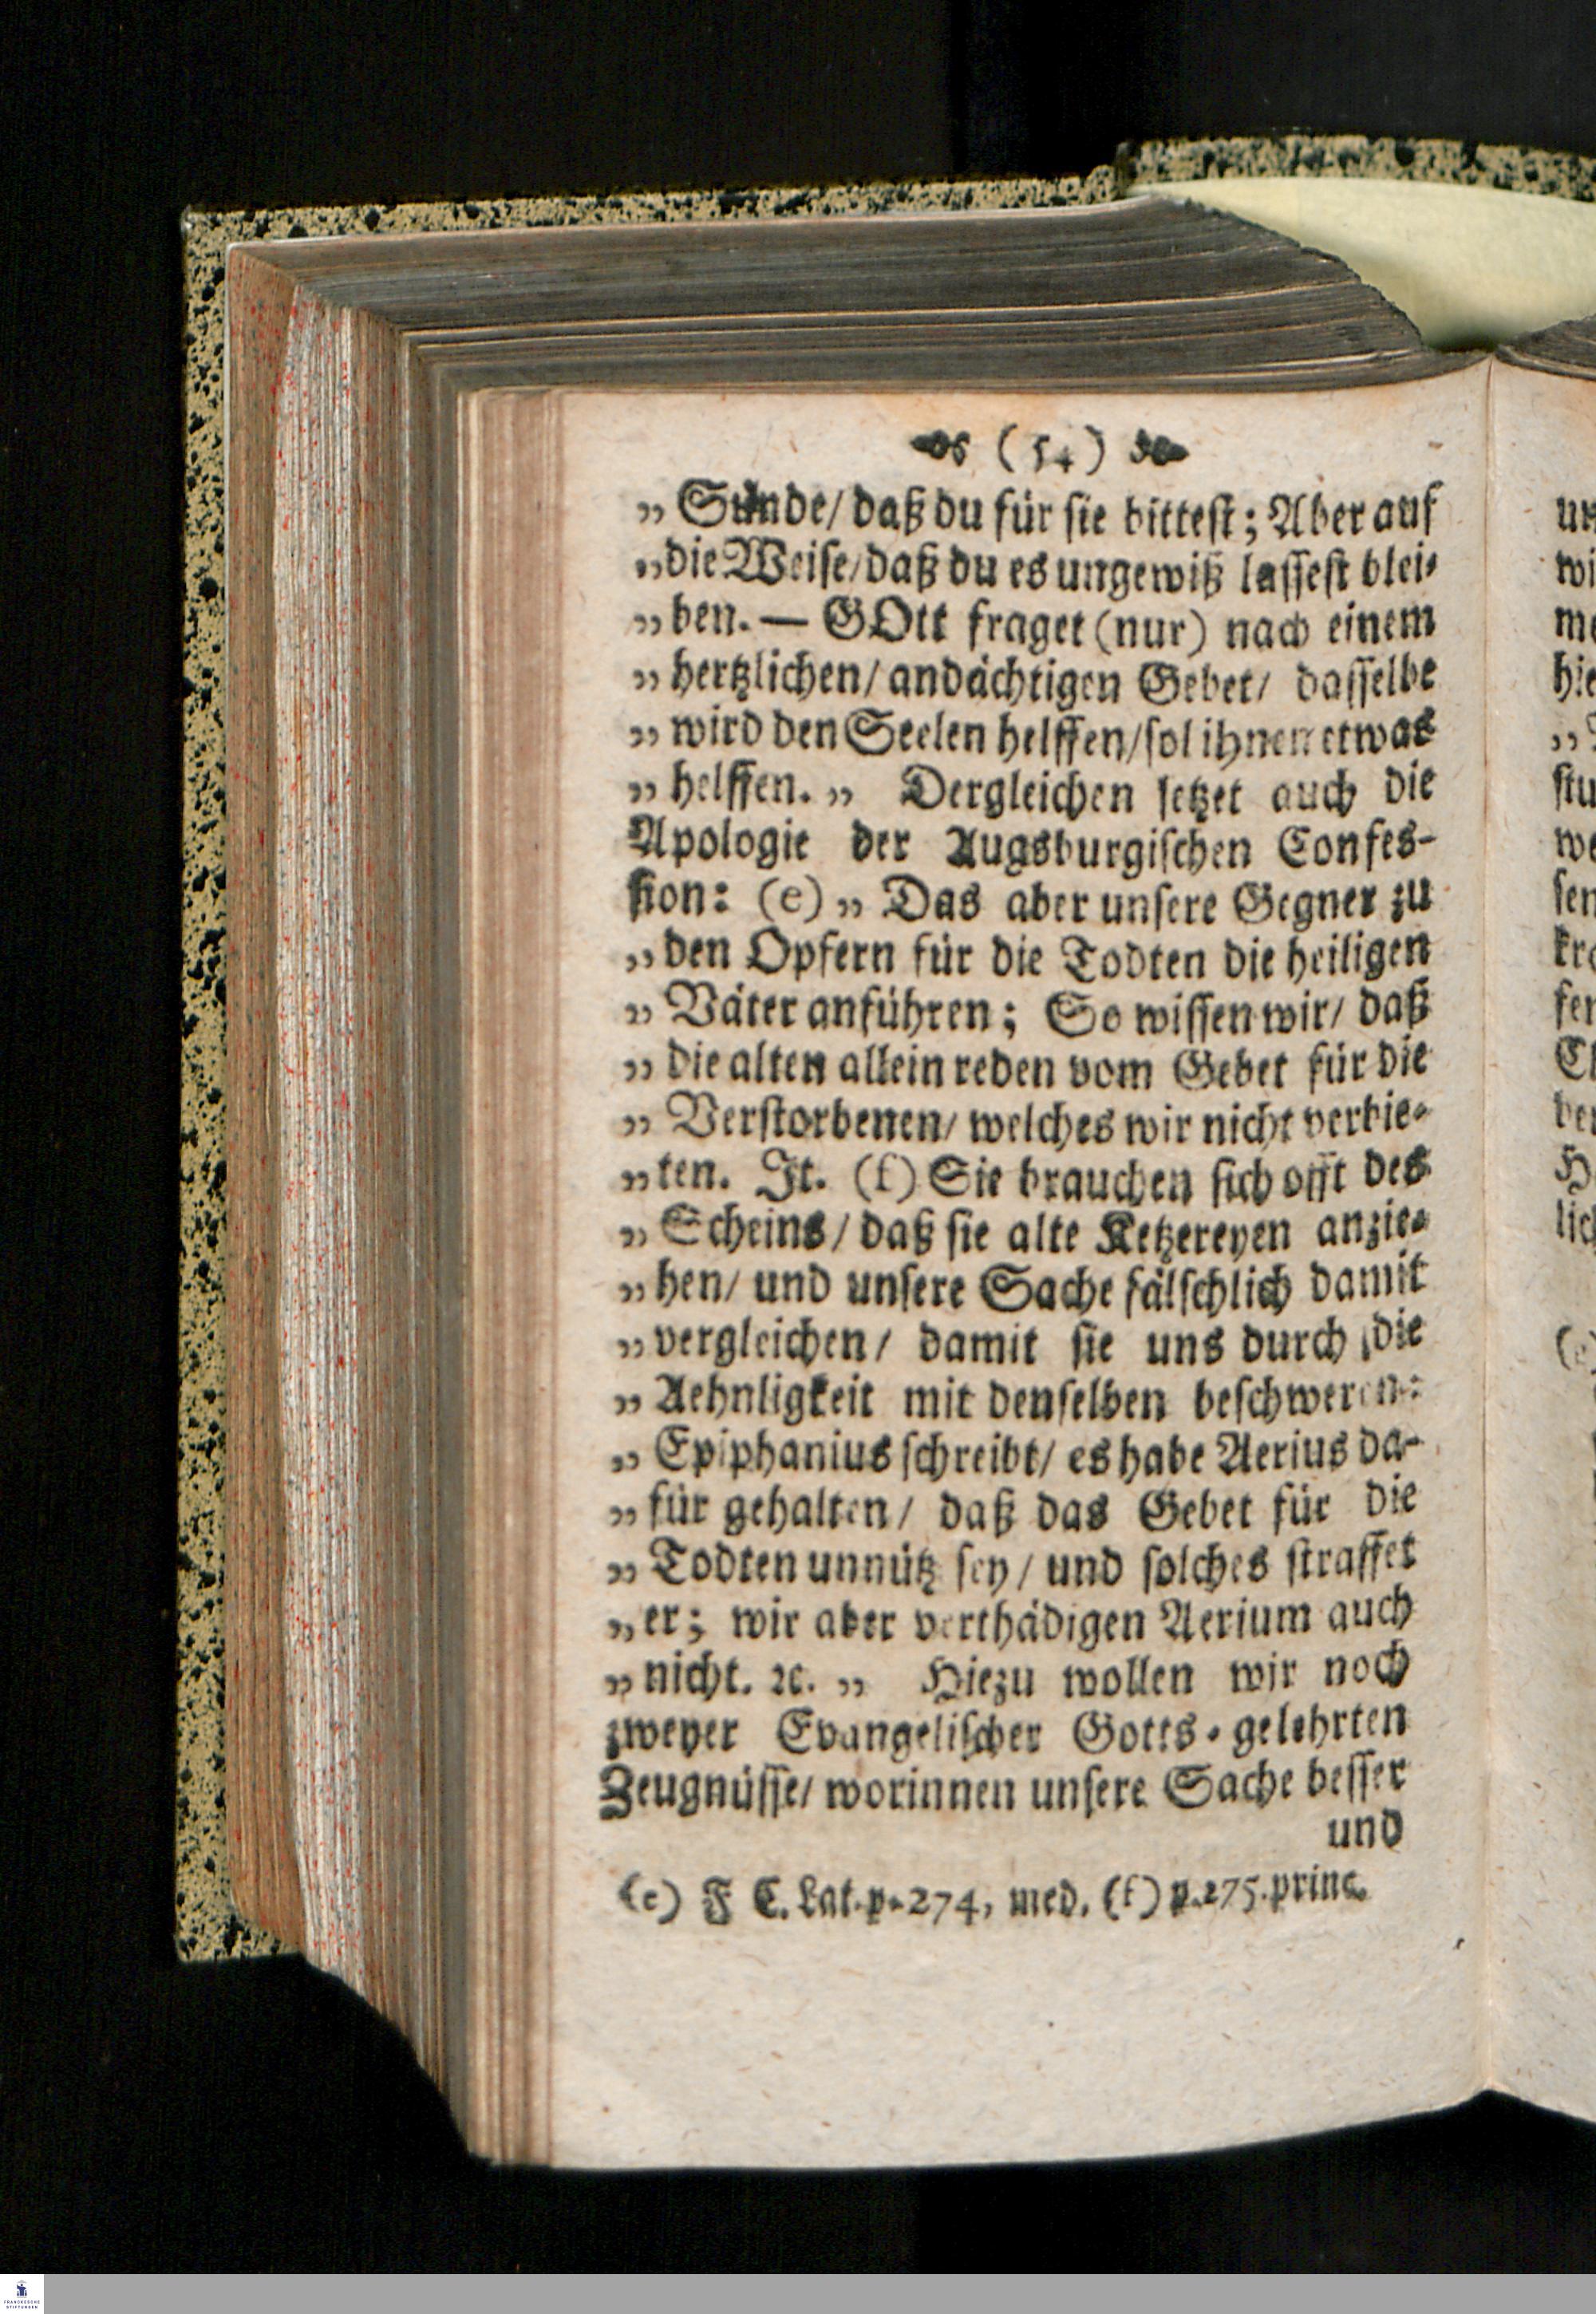 (54)
„ Sünde/ daß du für sie bittest; Aber auf
„die Weise/daß du es ungewiß lassest blei-
„ben. — GOtt fraget (nur) nach einem
„ hertzlichen/ andächtigen Gebet/ dasselbe
„ wird den Seelen helffen/sol ihnen etwas
„ helffen. „ Dergleichen setzet auch die
Apologie der Augsburgischen Confes-
sion: (e) „ Das aber unsere Gegner zu
„den Opfern für die Todten die heiligen
„ Väter anführen; So wissen wir/ daß
„ die alten allein reden vom Gebet für die
„ Verstorbenen/ welches wir nicht verbie-
„ten. It. (f) Sie brauchen sich offt des
„ Scheins/ daß sie alte Ketzereyen anzie-
„hen/ und unsere Sache fälschlich damit
„vergleichen/ damit sie uns durch die
„ Aehnligkeit mit denselben beschweren:
„ Epiphanius schreibt/ es habe Aerius da-
„für gehalten/ daß das Gebet für die
„ Todten unnütz sey/ und solches straffet
„er; wir aber verthädigen Aerium auch
„nicht. ꝛc. „ Hiezu wollen wir noch
zweyer Evangelischer Gotts-gelehrten
Zeugnüsse/ worinnen unsere Sache besser
und
(e) F C. Lat. p. 274, med. (f) p. 275. princ.
un
wi
me
hie
„
stu
we
sen
fer
lich
FRANCKESCHE
STIFTUNGEN